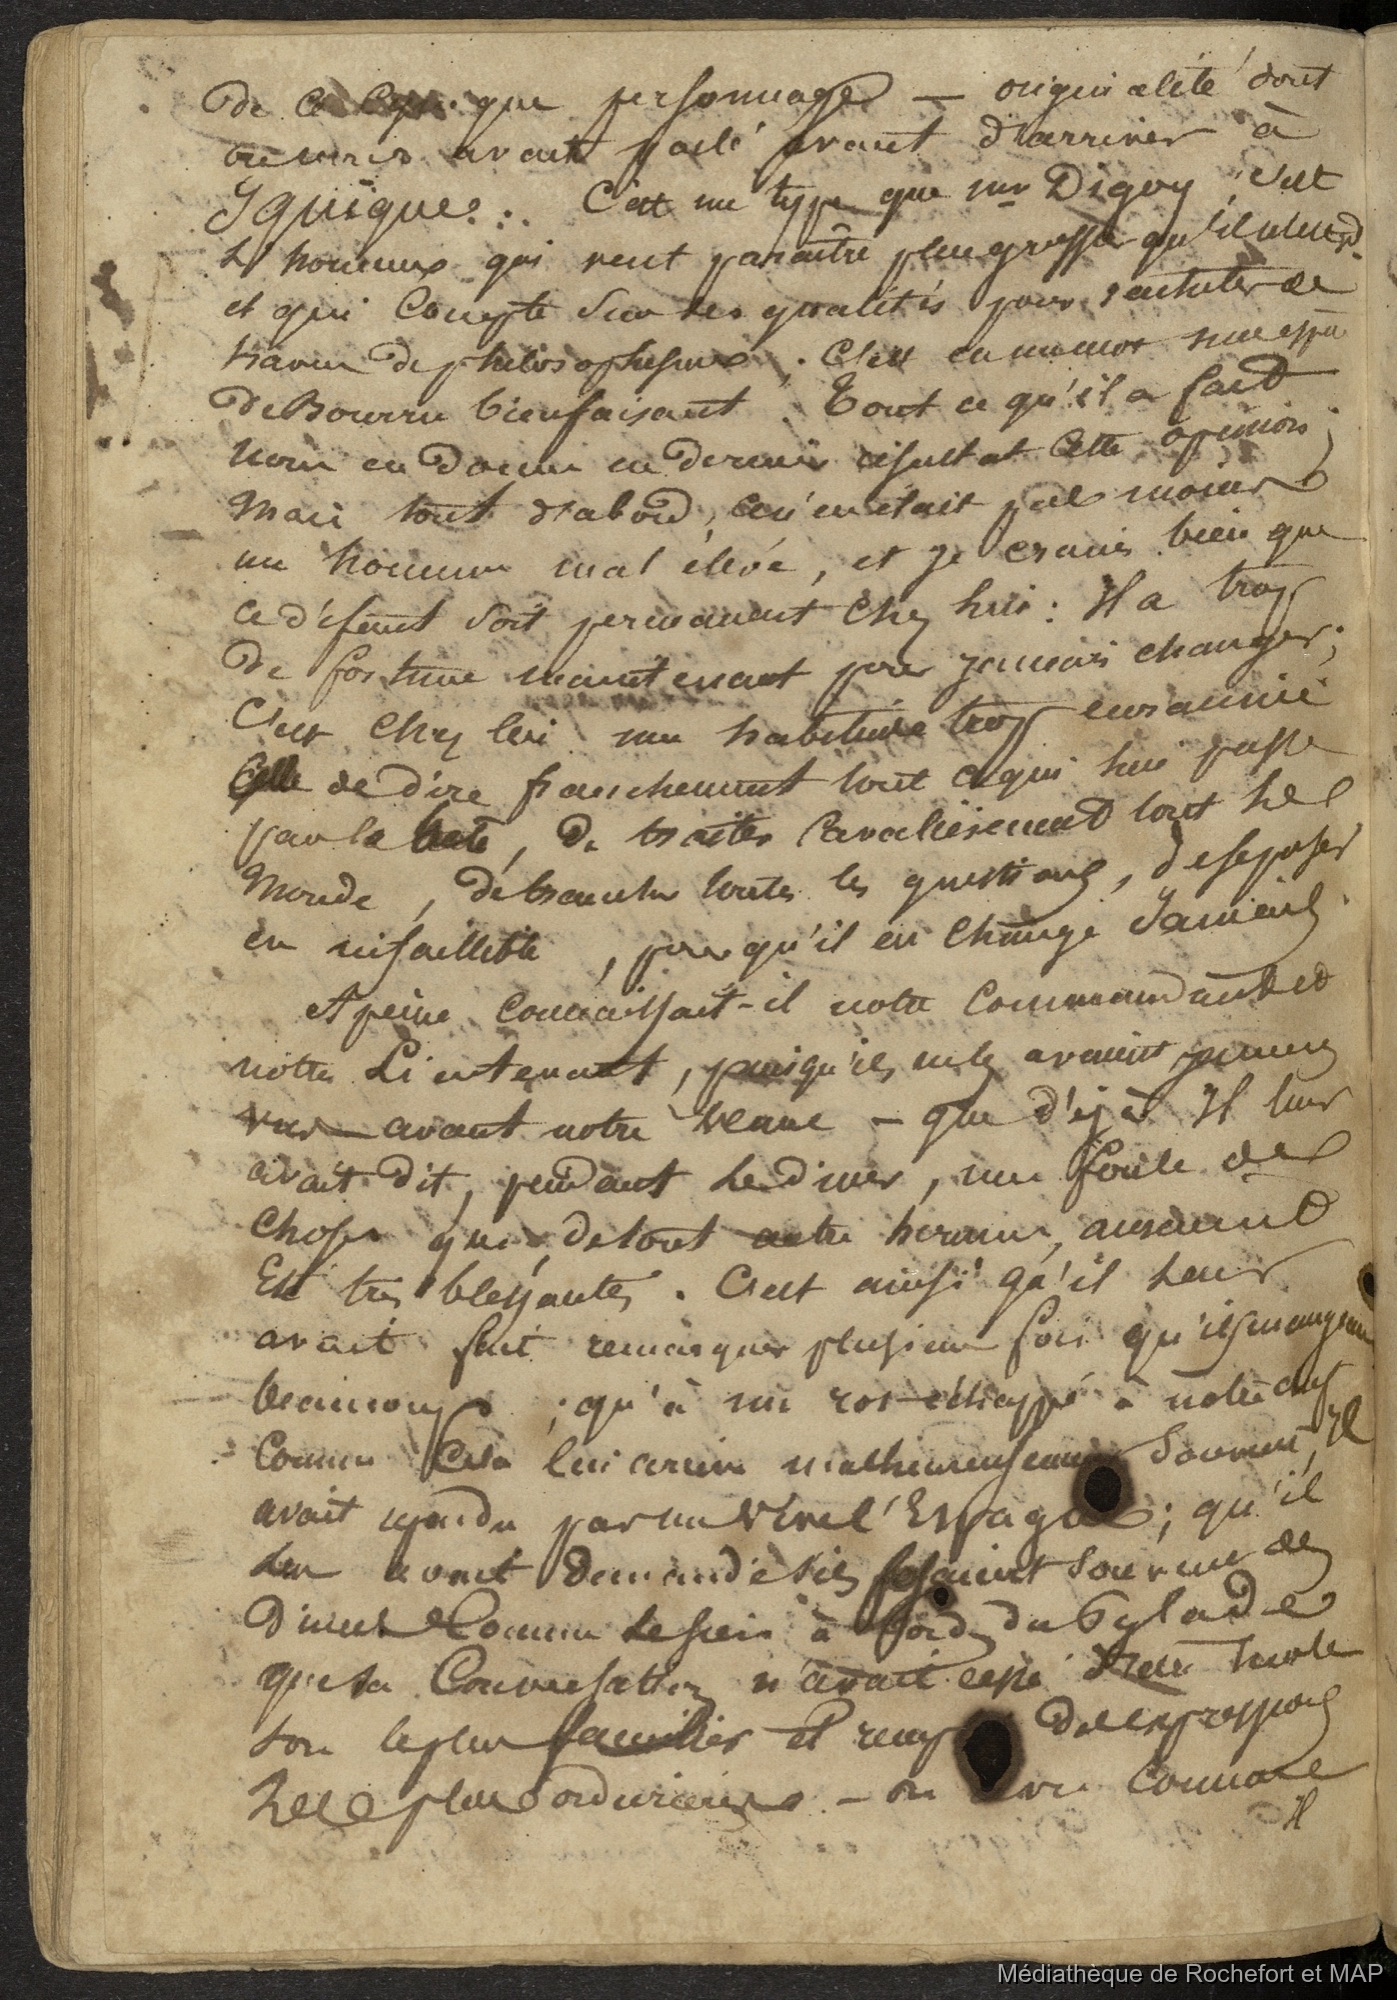 de ce cynique personnage — originalité dont
on nous avait parlé avant d'arriver à
Iquique. C'est un type que mr Digoy ; c'est
l'homme qui veut paraître plus grossier qu'il n'est
et qui compte sur ses qualités pour racheter ce
travers de philosophisme ; c'est en un mot une espèce
de Bourru bienfaisant. Tout ce qu'il a fait
nous en donne en dernier résultat cette opinion ;
Mais tout d'abord, ce n'en était pas moins
un homme mal élevé, et je crains bien que
ce défaut soit permanent chez lui : Il a trop
de fortune maintenant pour jamais changer ;
C'est chez lui une habitude trop enracinée
Celle de dire franchement tout ce qui lui passe
par la tête, de traiter cavalièrement tout le
Monde, de trancher toutes les questions, de se poser
en infaillible, pour qu'il en change Jamais.
A peine connaissait-il notre commandant et
notre Lieutenant, puisqu'ils ne les avaient jamais
vus — avant notre venue — que déjà Il leur
avait dit, pendant le diner, une foule de
choses qui, de tout autre homme, auraient
Eté très blessantes. C'est ainsi qu'il leur
avait fait remarquer plusieurs fois qu'ils mangeaient
beaucoup ; qu'à un rot échappé à notre chef
Comme cela lui arrive malheureusement souvent, Il
avait répondu par un vive l'Espagne ; qu'il
leur avait demandé s'ils faisaient souvent des
Diners Comme le sien à bord du Pylade
que sa Conversation n'avait cessé d'être sur le
ton le plus familier et rempli d'expressions
les plus ordurières — on comme
Il
Médiathèque de Rochefort et MAP